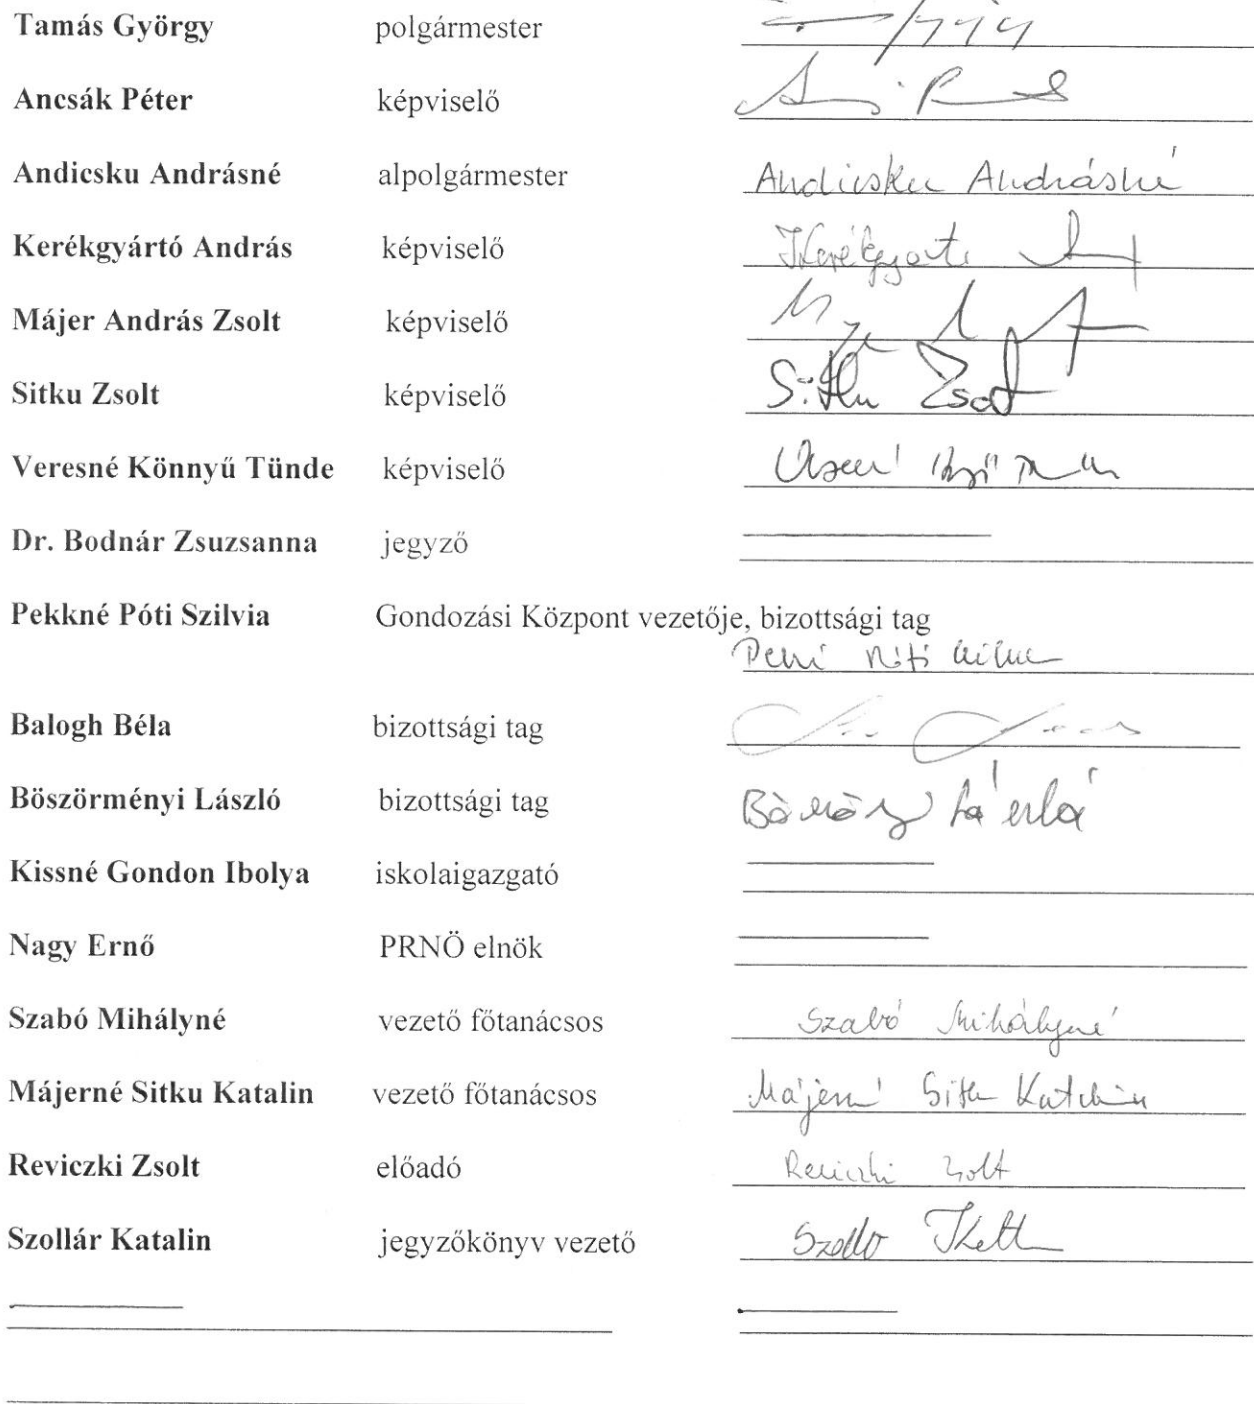 Tamás György polgármester
Ancsák Péter képviselő
Andicsku Andrásné alpolgármester Andicsku Andrásné
Kerékgyártó András képviselő
Májer András Zsolt képviselő
Sitku Zsolt képviselő Sitku Zsolt
Veresné Könnyű Tünde képviselő
Dr. Bodnár Zsuzsanna jegyző
Pekkné Póti Szilvia Gondozási Központ vezetője, bizottsági tag
Balogh Béla bizottsági tag
Böszörményi László bizottsági tag
Kissné Gondon Ibolya iskolaigazgató
Nagy Ernő PRNÖ elnök
Szabó Mihályné vezető főtanácsos Szabó Mihályné
Májerné Sitku Katalin vezető főtanácsos Májerné Sitku Katalin
Reviczki Zsolt előadó Reviczki Zsolt
Szollár Katalin jegyzőkönyv vezető